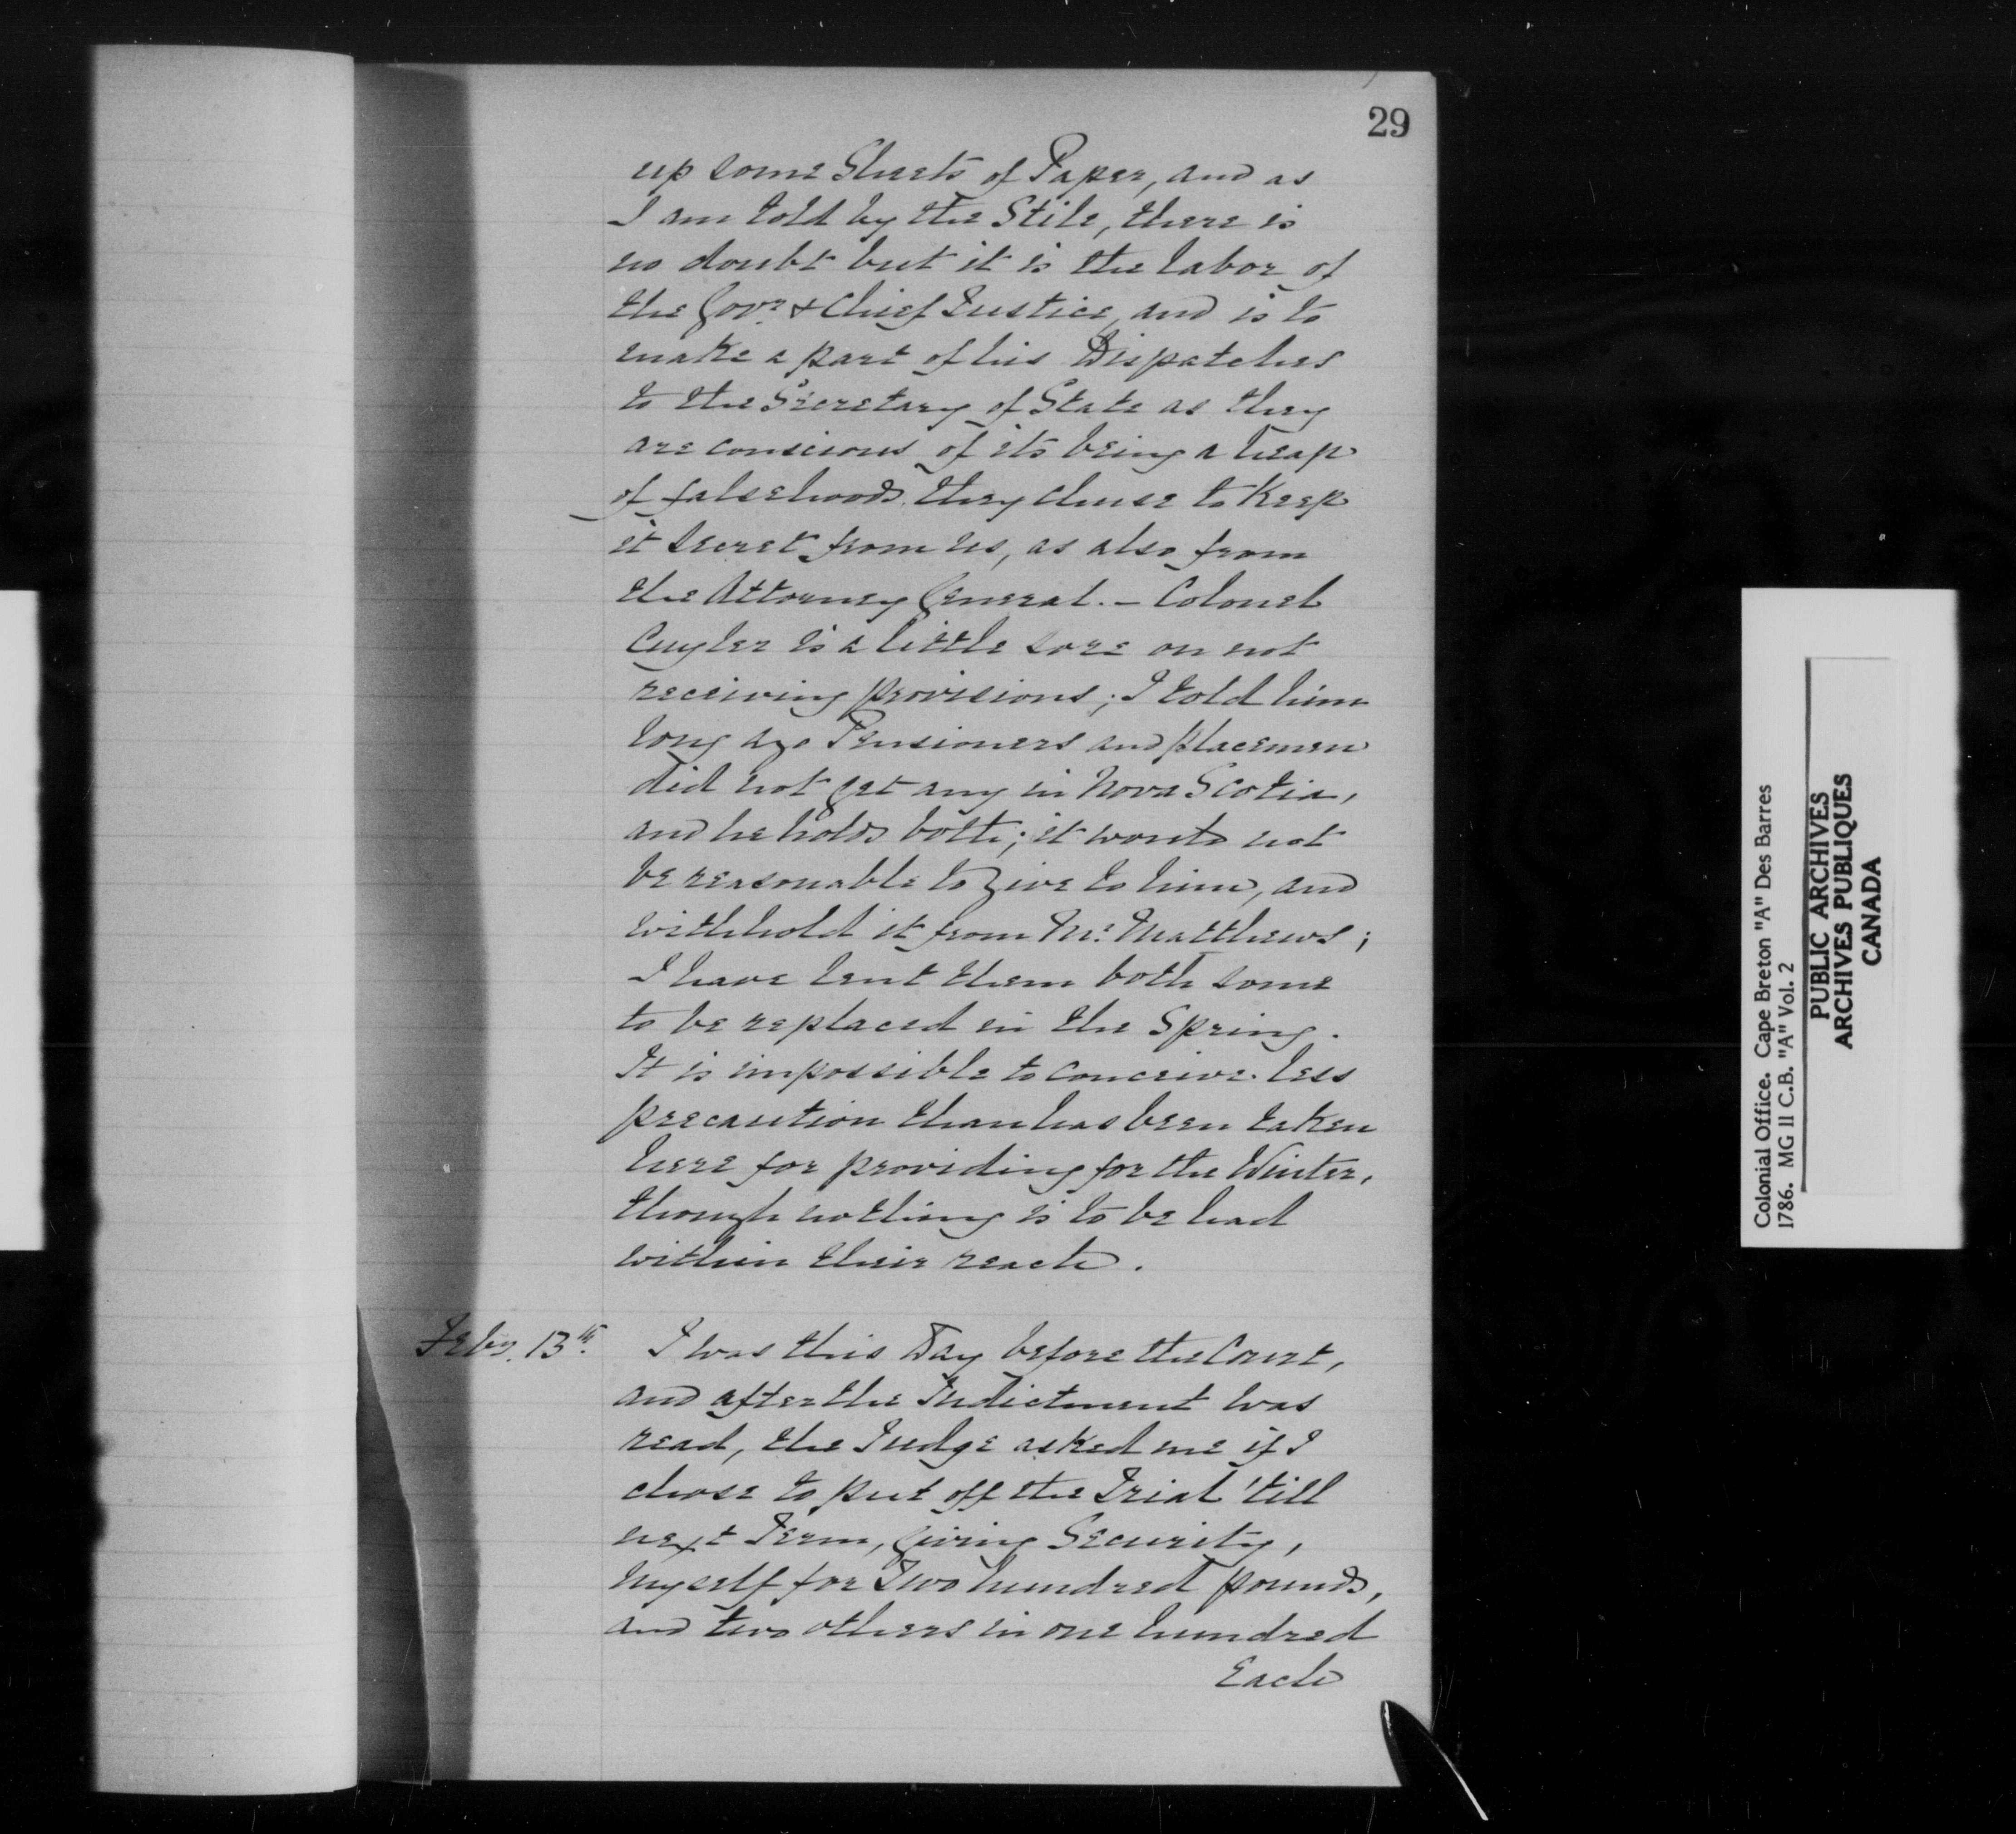 29
up some Sheets of Paper, and as
I am told by the Stile, there is
no doubt but it is the labor of
the Govr. & Chief Justice, and is to
make a part of his Dispatches
to the Secretary of State as they
are conscious of its being a heap
of falsehoods they chuse to Keep
it secret from us, as also from
the Attorney General. - Colonel
Cuyler is a little sore on not
receiving provisions; I told him
long ago Pensioners and placemen
did not get any in Nova Scotia,
and he holds both; it would not
be reasonable to give to him, and
withhold it from Mr. Matthews;
I have lent them both some
to be replaced in the Spring.
It is impossible to conceive less
precaution than has been taken
here for providing for the Winter,
though nothing is to be had
within their reach.
Feby. 13th. I was this Day before the Court,
and after the Indictment was
read, the Judge asked me if I
chose to put off the Trial 'till
next Term, giving Security,
myself for Two hundred pounds,
and two others in one hundred
Each
Colonial Office. Cape Breton "A" Des Barres
1786. MG 11 C.B. "A" Vol. 2
PUBLIC ARCHIVES
ARCHIVES PUBLIQUES
CANADA